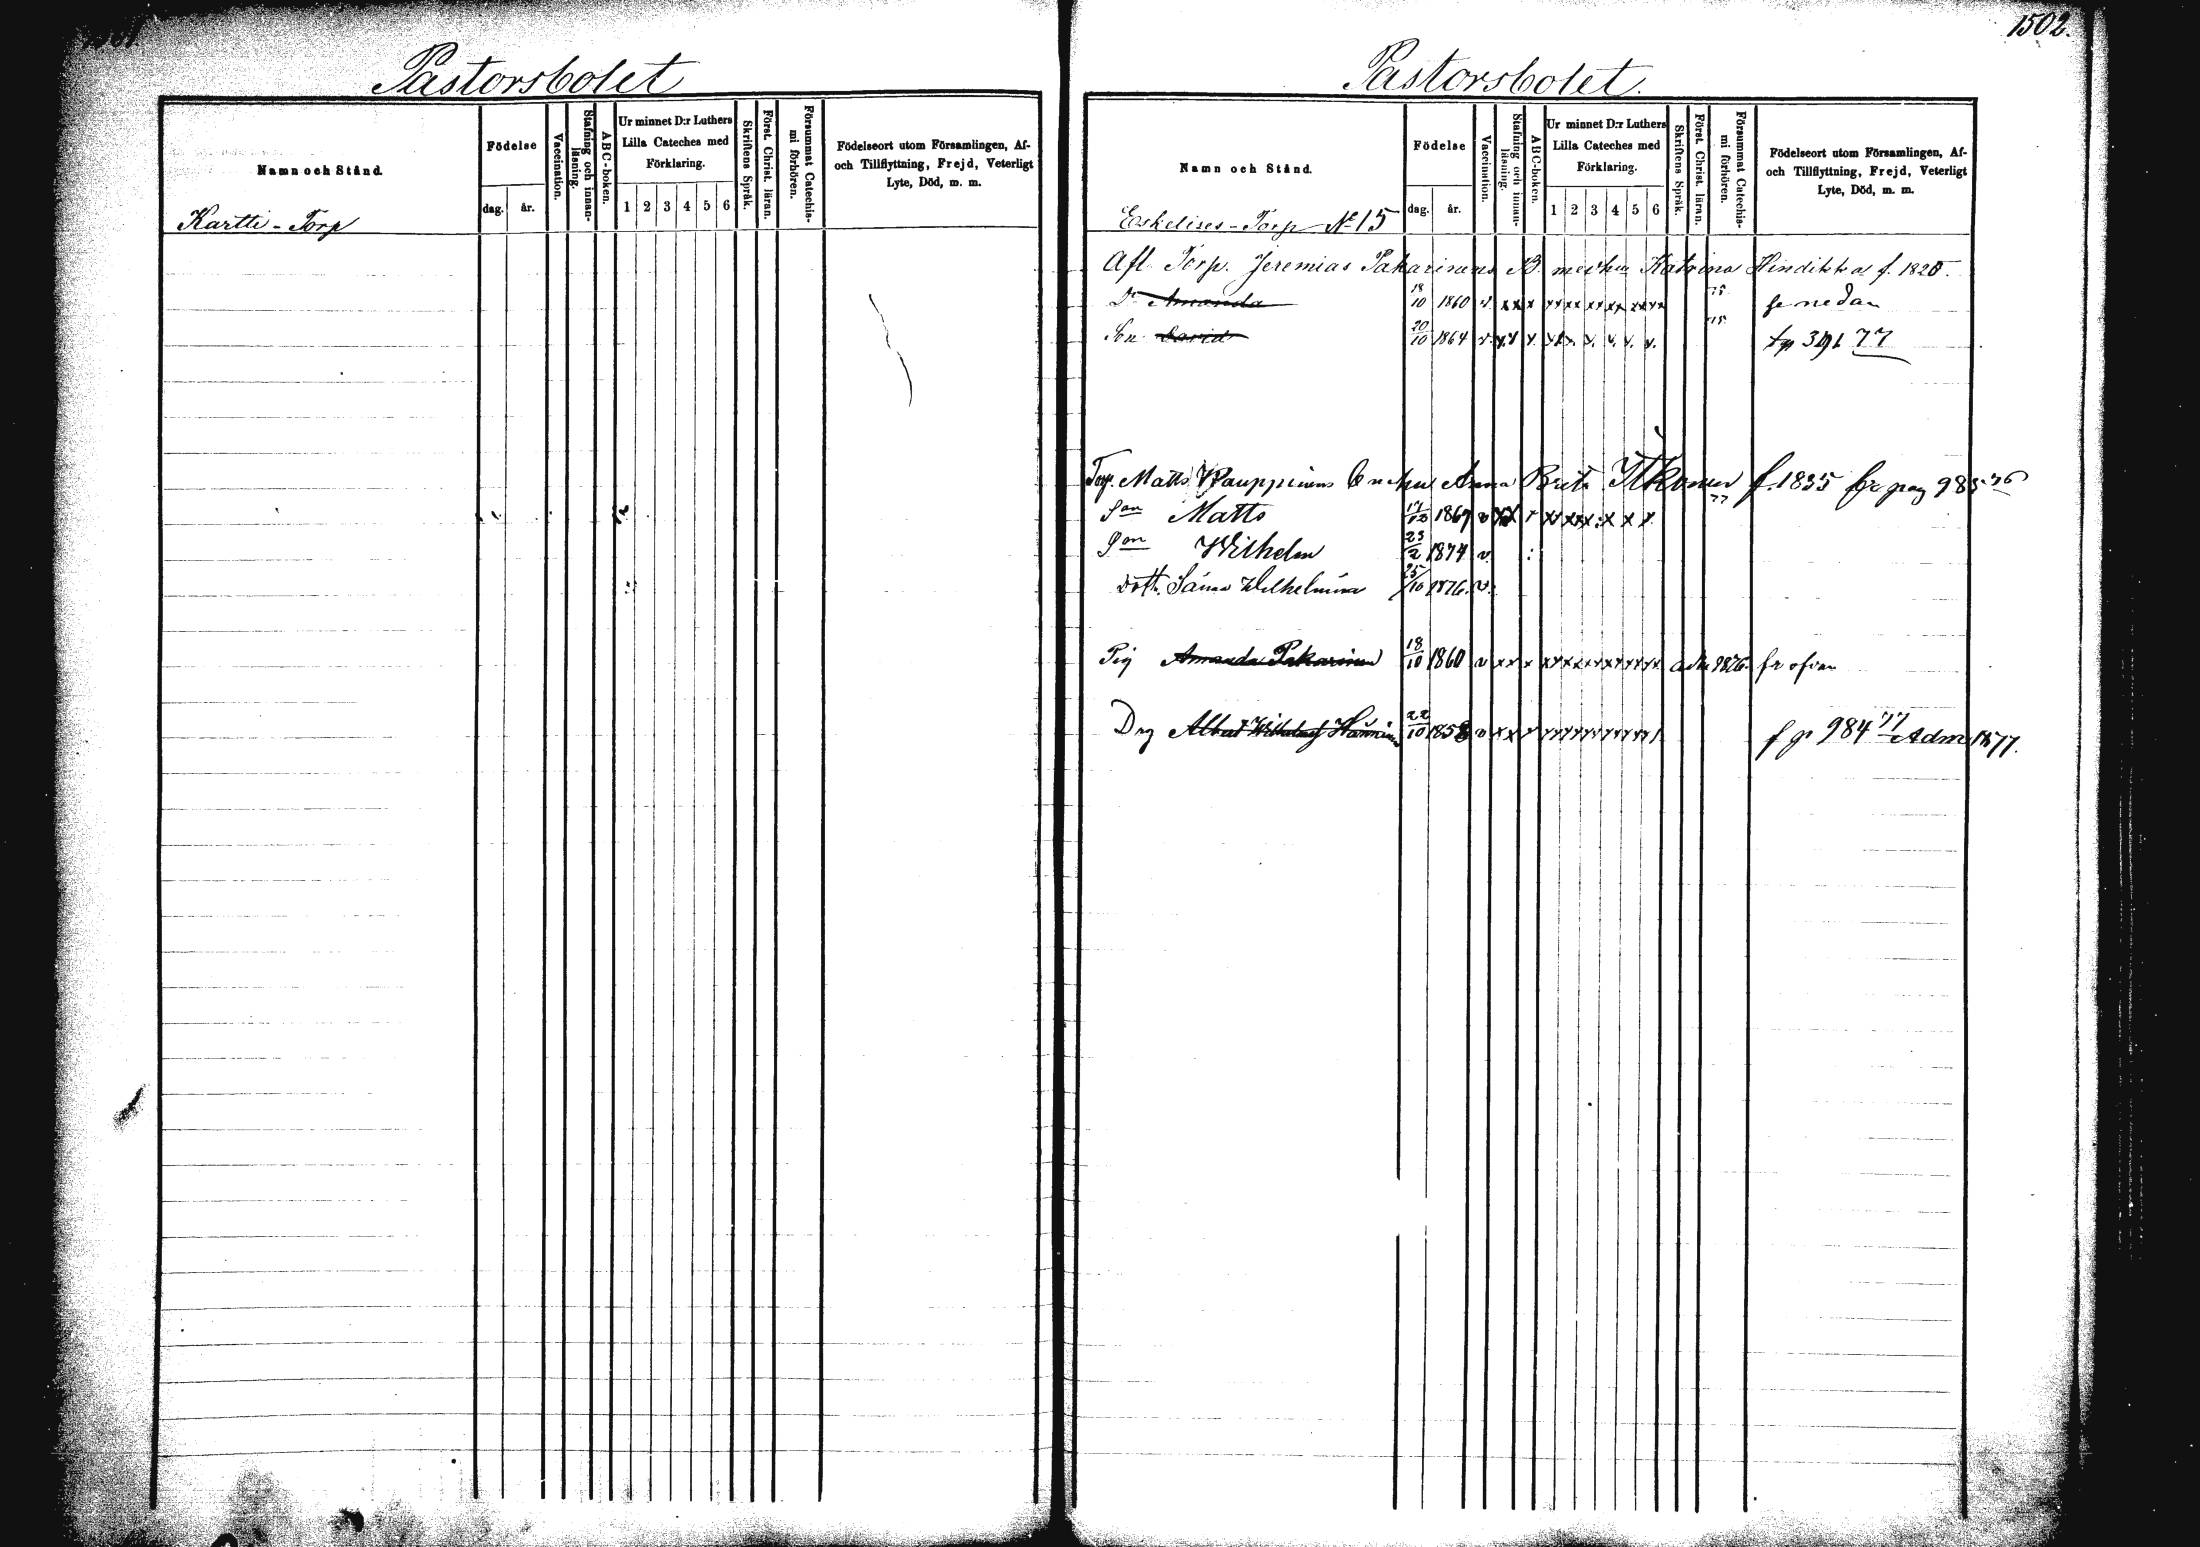 Pastorsbolet
Namn och Stånd.
Födelse
dag.
år.
Vaccination.
Stafning och innan-
läsning.
ABC-boken.
Ur minnet D:r Luthers
Lilla Cateches med
Förklaring.
1 2 3 4 5 6
Skriftens Språk.
Först. Christ. läran.
Försummat Catechis-
mi förhören.
Födelseort utom Församlingen, Af-
och Tillflyttning, Frejd, Veterligt
Lyte, Död, m. m.
Kartti-Torp
1502.
Pastorsbolet.
Namn och Stånd.
Födelse
dag.
år.
Vaccination.
Stafning och innan-
läsning.
ABC-boken.
Ur minnet D:r Luthers
Lilla Cateches med
Förklaring.
1 2 3 4 5 6
Skriftens Språk.
Först. Christ. läran.
Försummat Catechis-
mi förhören.
Födelseort utom Församlingen, Af-
och Tillflyttning, Frejd, Veterligt
Lyte, Död, m. m.
Eskelises-Torp No 15
Afl. Torp. Jeremias Pakarinens Katrina Hindikka f. 1820.
Dr Amanda 18/10 1860 v xx x xx xx xx xx xx xx 75 se nedan
Son David 20/10 1864 v 75 77
Torp. Matts Kauppinens Enehu Anna Brita Itkonen f. 1835 fr pag 985 76
Son Matts 17/12 1867 v xx 77
Son Wilhelm 23/2 1874 v.
Dott. Sanna Wilhelmina 25/10 1876. v.
Pig Amanda Pakarinen 18/10 1860 v xx x adm 1876. fr ofvan
Drg Albert Wilhelm Hänninen 22/10 1858 v xx f p 984 77 Adm 1877.